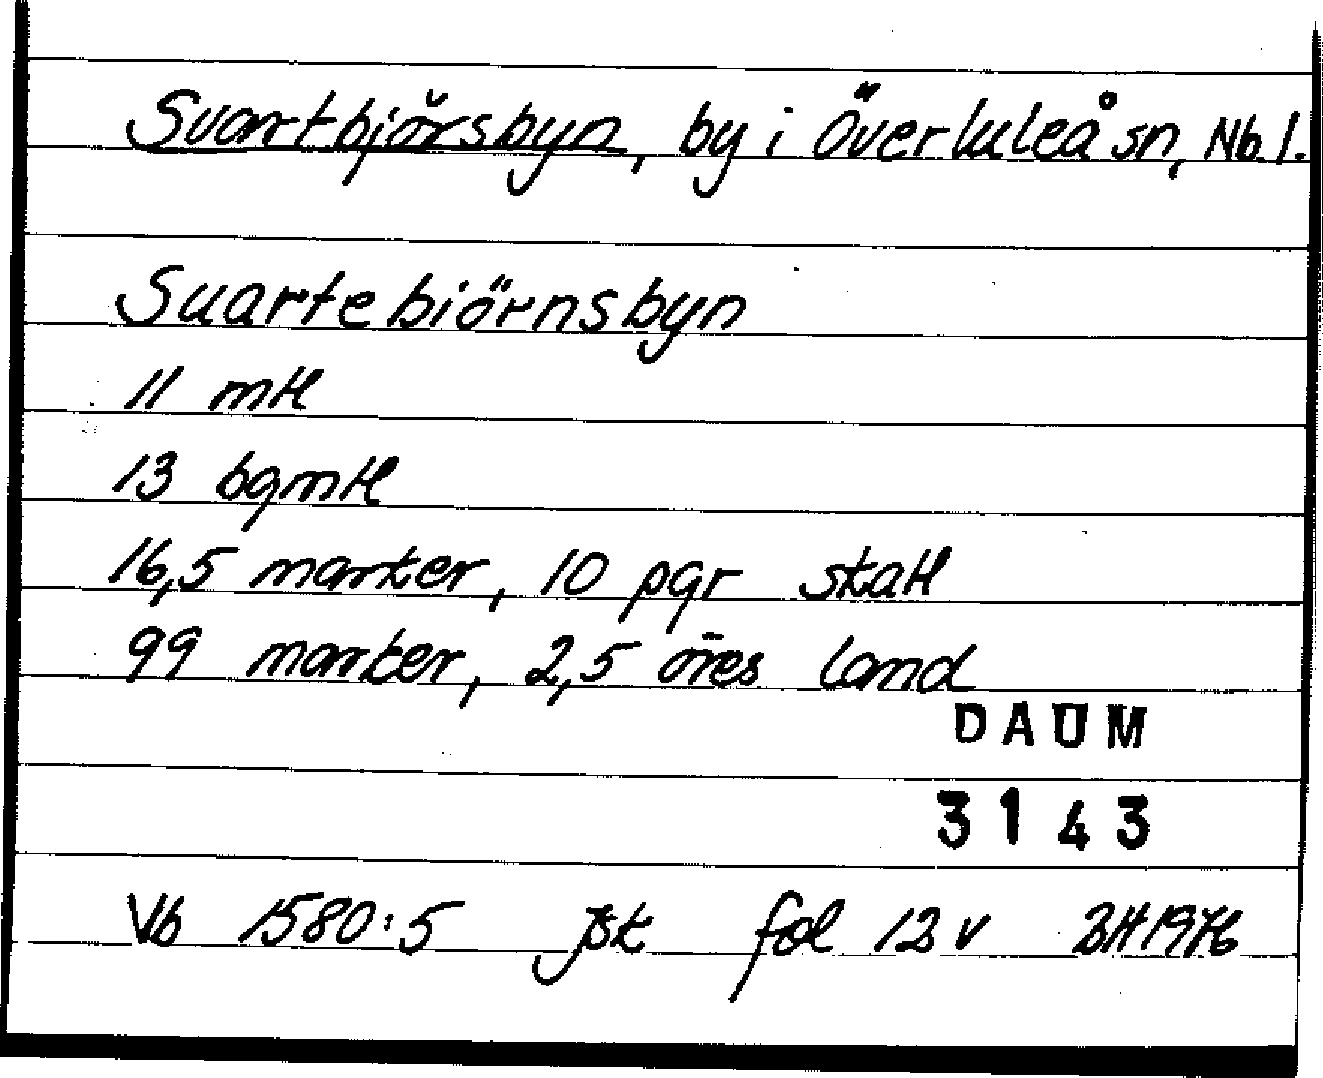 Svartbjörsbyn, by i Överluleå sn, Nb l.
Suartebiörnsbyn
11 mtl
13 bgmtl
16,5 marker, 10 pgr skatt
99 marker, 2,5 öres land
DAUM
3143
Vb 1580:5 jbk fol 12 v BH 1976